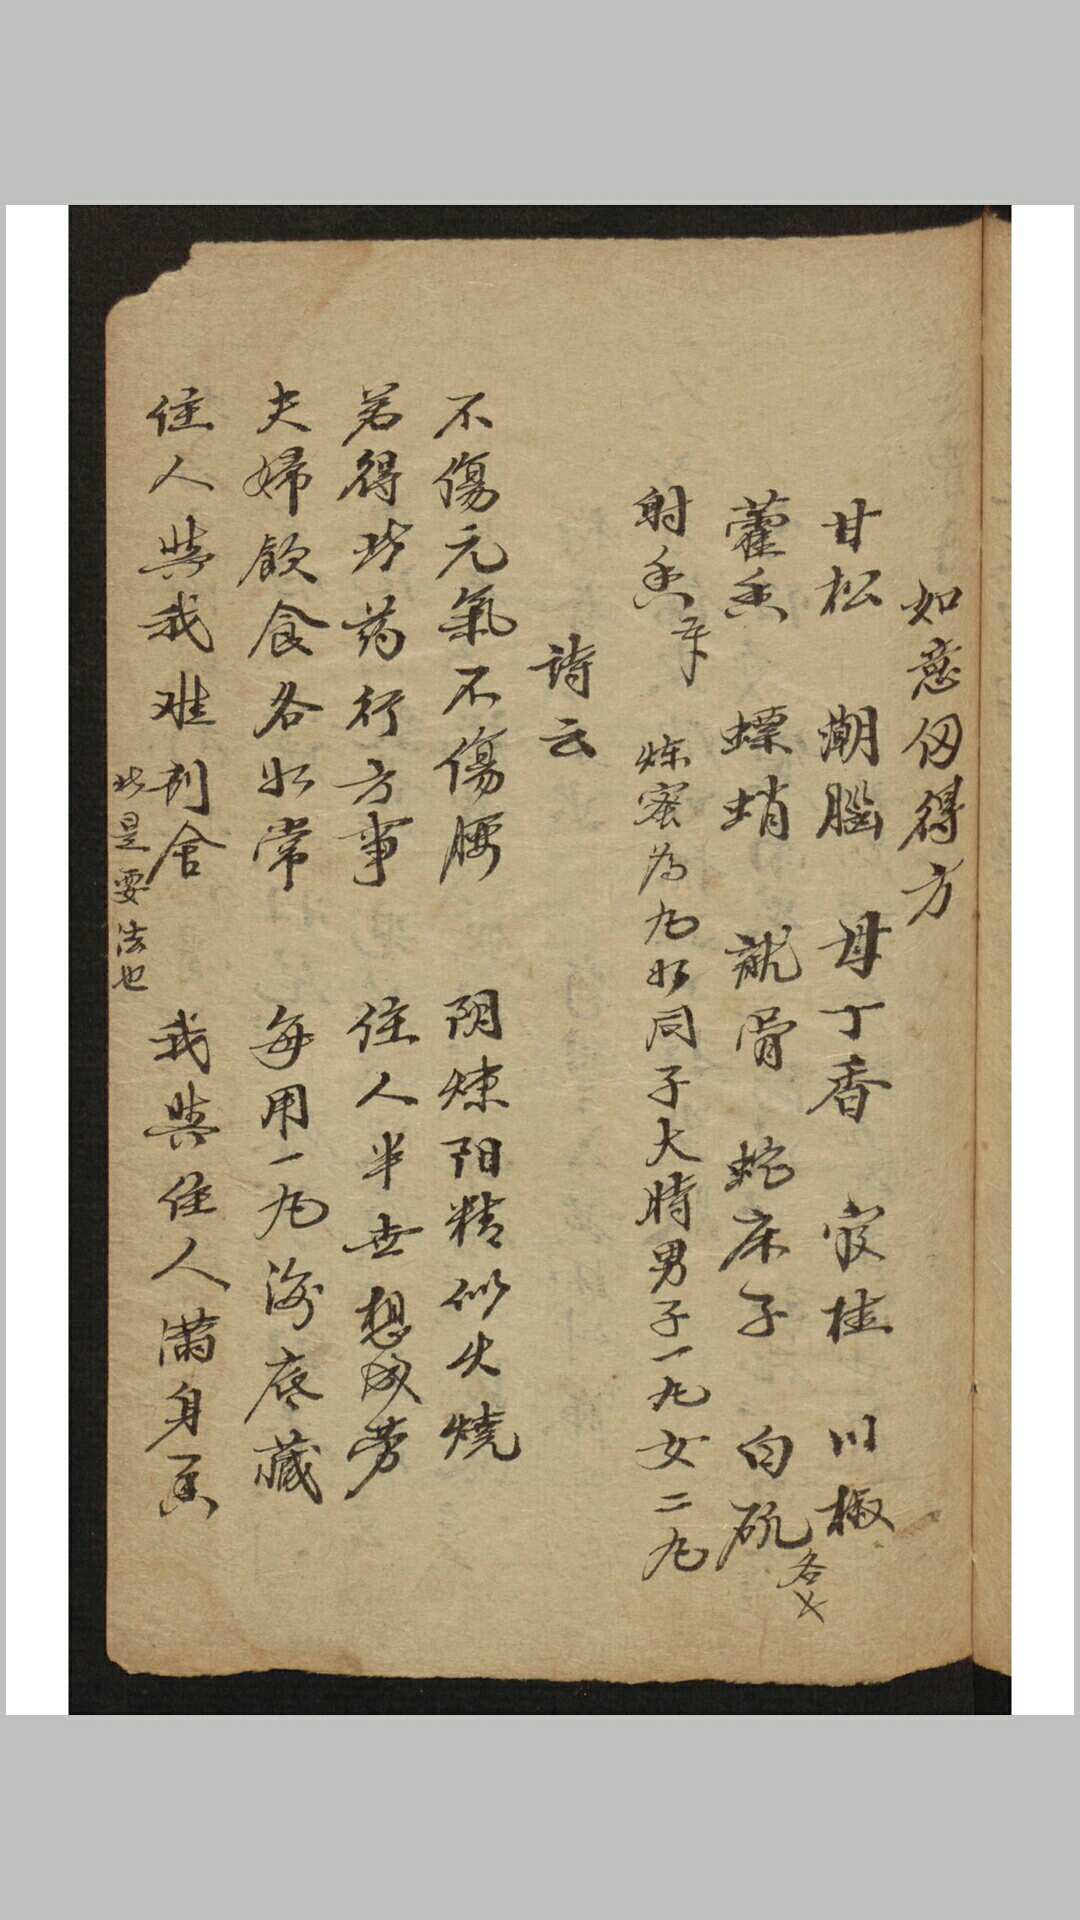 如意仭得方
甘松 潮腦 母丁香 官桂 川椒
藿香 螵蛸 龍骨 蛇床子 白矾 各
射香 炼蜜为丸如同子大時男子一丸女二丸
詩云
不傷元氣不傷腰 阴煉阳精似火燒
若得此药行方事 佳人半世想
夫婦飲食各如常 每用一丸海底藏
佳人與我难割舍 我與佳人满身香
此是要法也